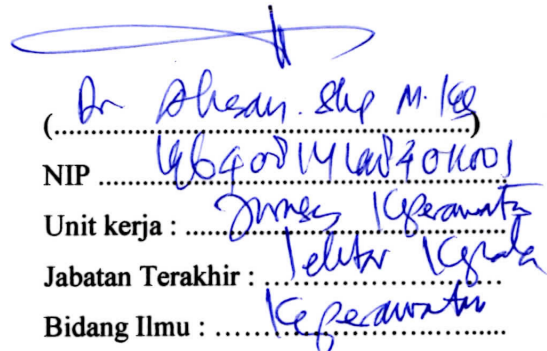 (Dr Ahsan. SKp M.Kes)
NIP 196408141984011001
Unit kerja : Jurusan Keperawatan
Jabatan Terakhir : Lektor Kepala
Bidang Ilmu : Keperawatan